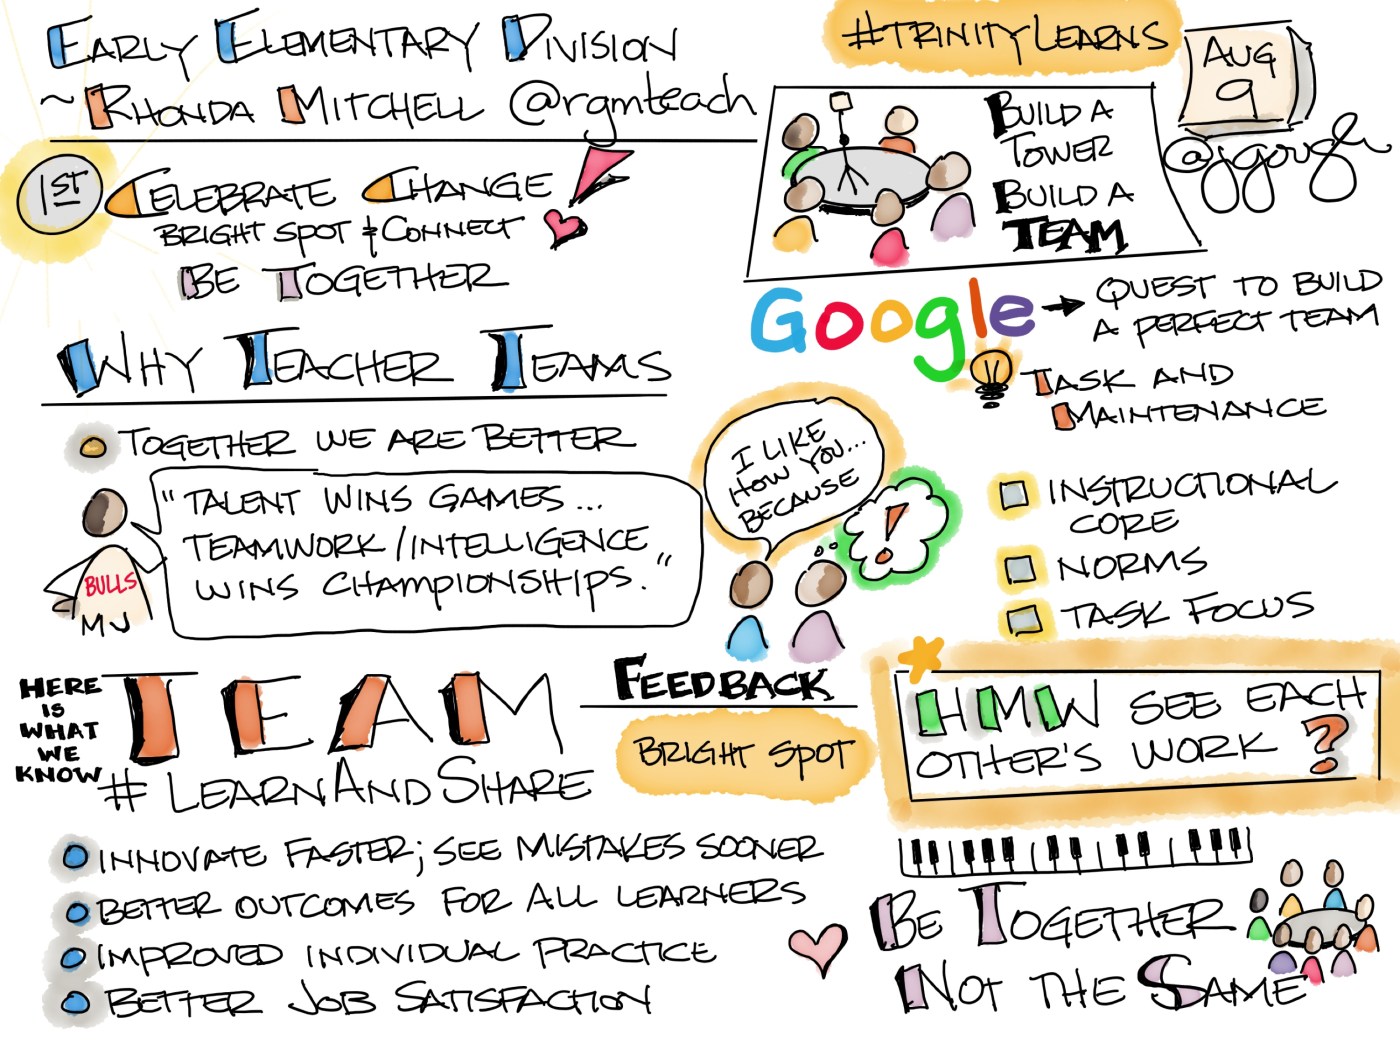 EARLY ELEMENTARY DIVISION
~ RHONDA MITCHELL @rgmteach
1ST
CELEBRATE CHANGE
BRIGHT SPOT & CONNECT
BE TOGETHER
#TRINITYLEARNS
AUG
9
@jgough
BUILD A
TOWER
BUILD A
TEAM
Google → QUEST TO BUILD
A PERFECT TEAM
TASK AND
MAINTENANCE
WHY TEACHER TEAMS
TOGETHER WE ARE BETTER
"TALENT WINS GAMES...
TEAMWORK/INTELLIGENCE
WINS CHAMPIONSHIPS."
BULLS
MJ
I LIKE
HOW YOU...
BECAUSE
!
FEEDBACK
BRIGHT SPOT
INSTRUCTIONAL
CORE
NORMS
TASK FOCUS
HMW SEE EACH
OTHER'S WORK ?
HERE
IS
WHAT
WE
KNOW
TEAM
#LEARNANDSHARE
INNOVATE FASTER; SEE MISTAKES SOONER
BETTER OUTCOMES FOR ALL LEARNERS
IMPROVED INDIVIDUAL PRACTICE
BETTER JOB SATISFACTION
BE TOGETHER
NOT THE SAME